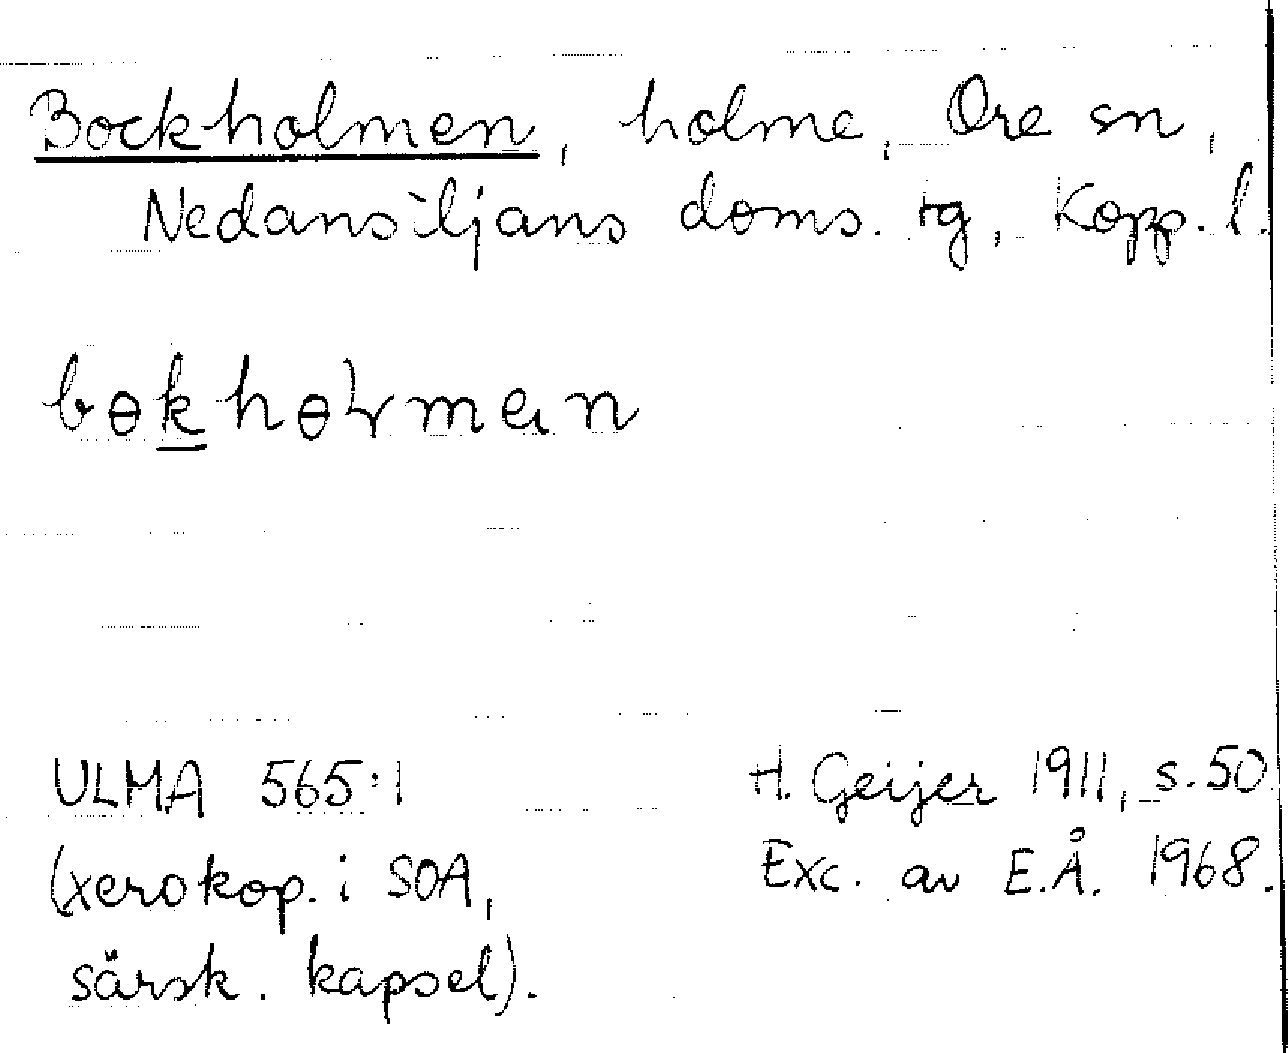 Bockholmen, holme, Ore sn,
Nedansiljans doms. tg, Kopp. l.
bɵkhɵɫmən
ULMA 565:1
H. Geijer 1911, s. 50
(xerokop. i SOA,
Exc. av E.Å. 1968.
särsk. kapsel).